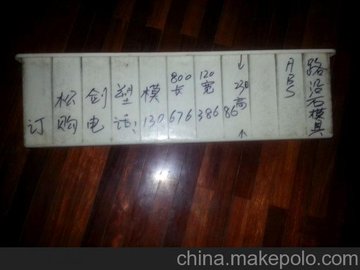 松剑塑模 800长 120宽 230高 ABS 路沿石模具
订购电话:13067638686
china.makepolo.com